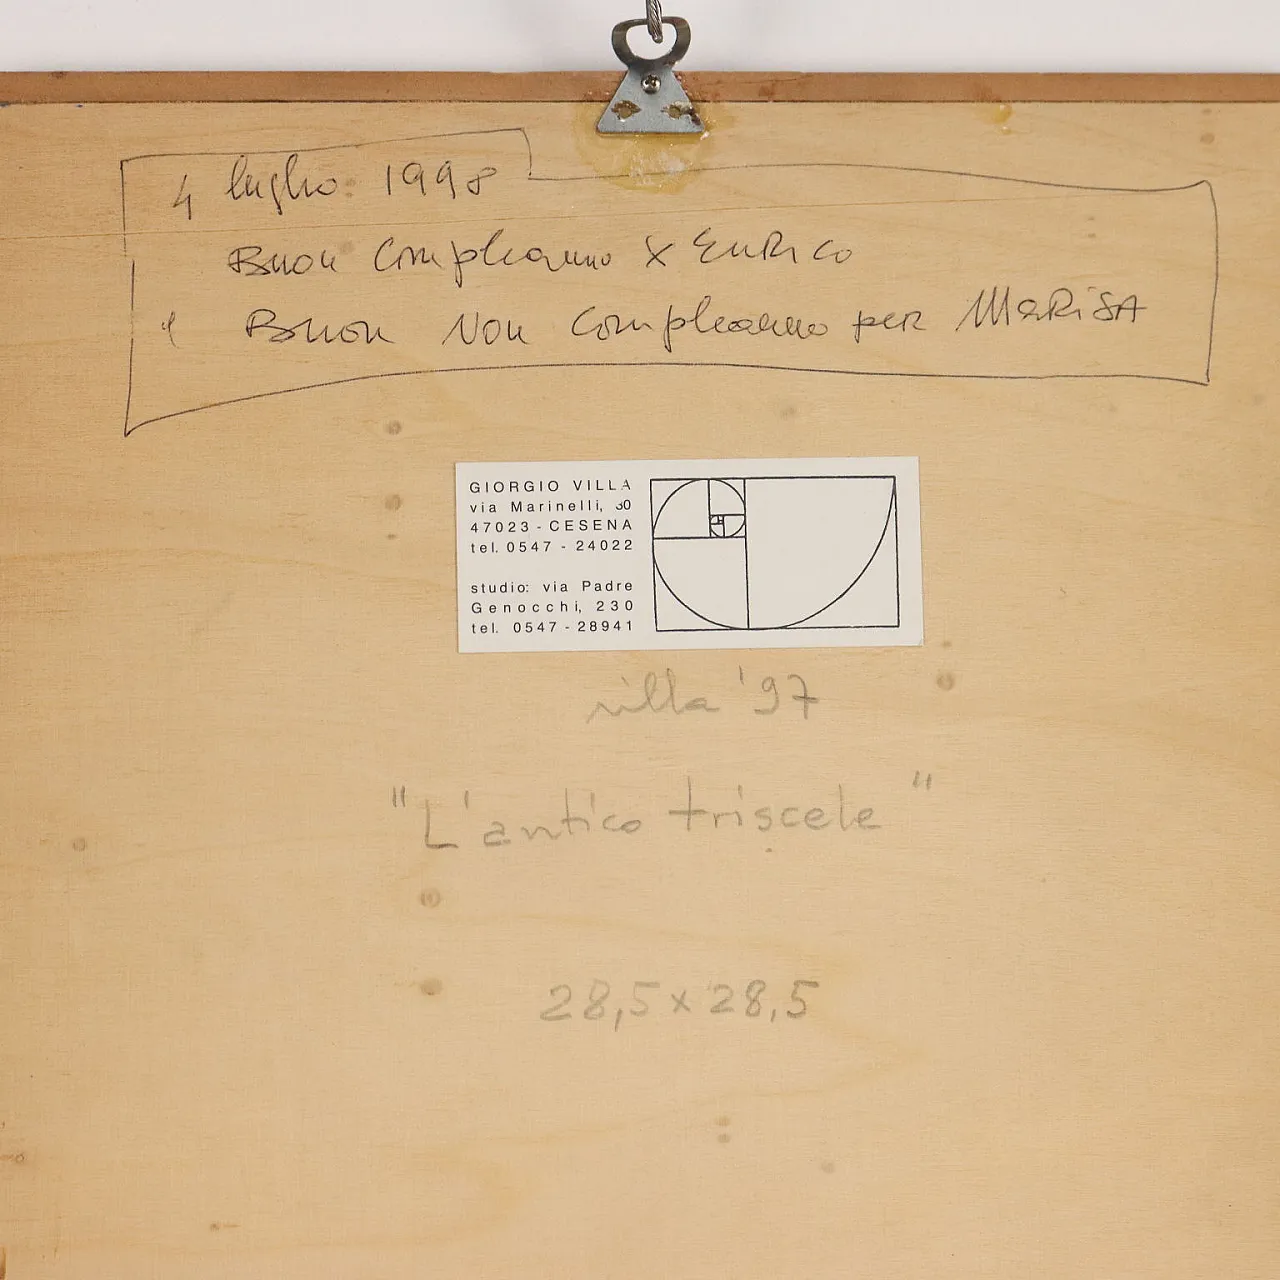 4 luglio 1998
Buon Compleanno x EnRico
e Buon Non Compleanno per MaRiSA
GIORGIO VILLA
via Marinelli, 30
47023 - CESENA
tel. 0547 - 24022
studio: via Padre
Genocchi, 230
tel. 0547 - 28941
villa '97
"L'antico triscele"
28,5 x 28,5